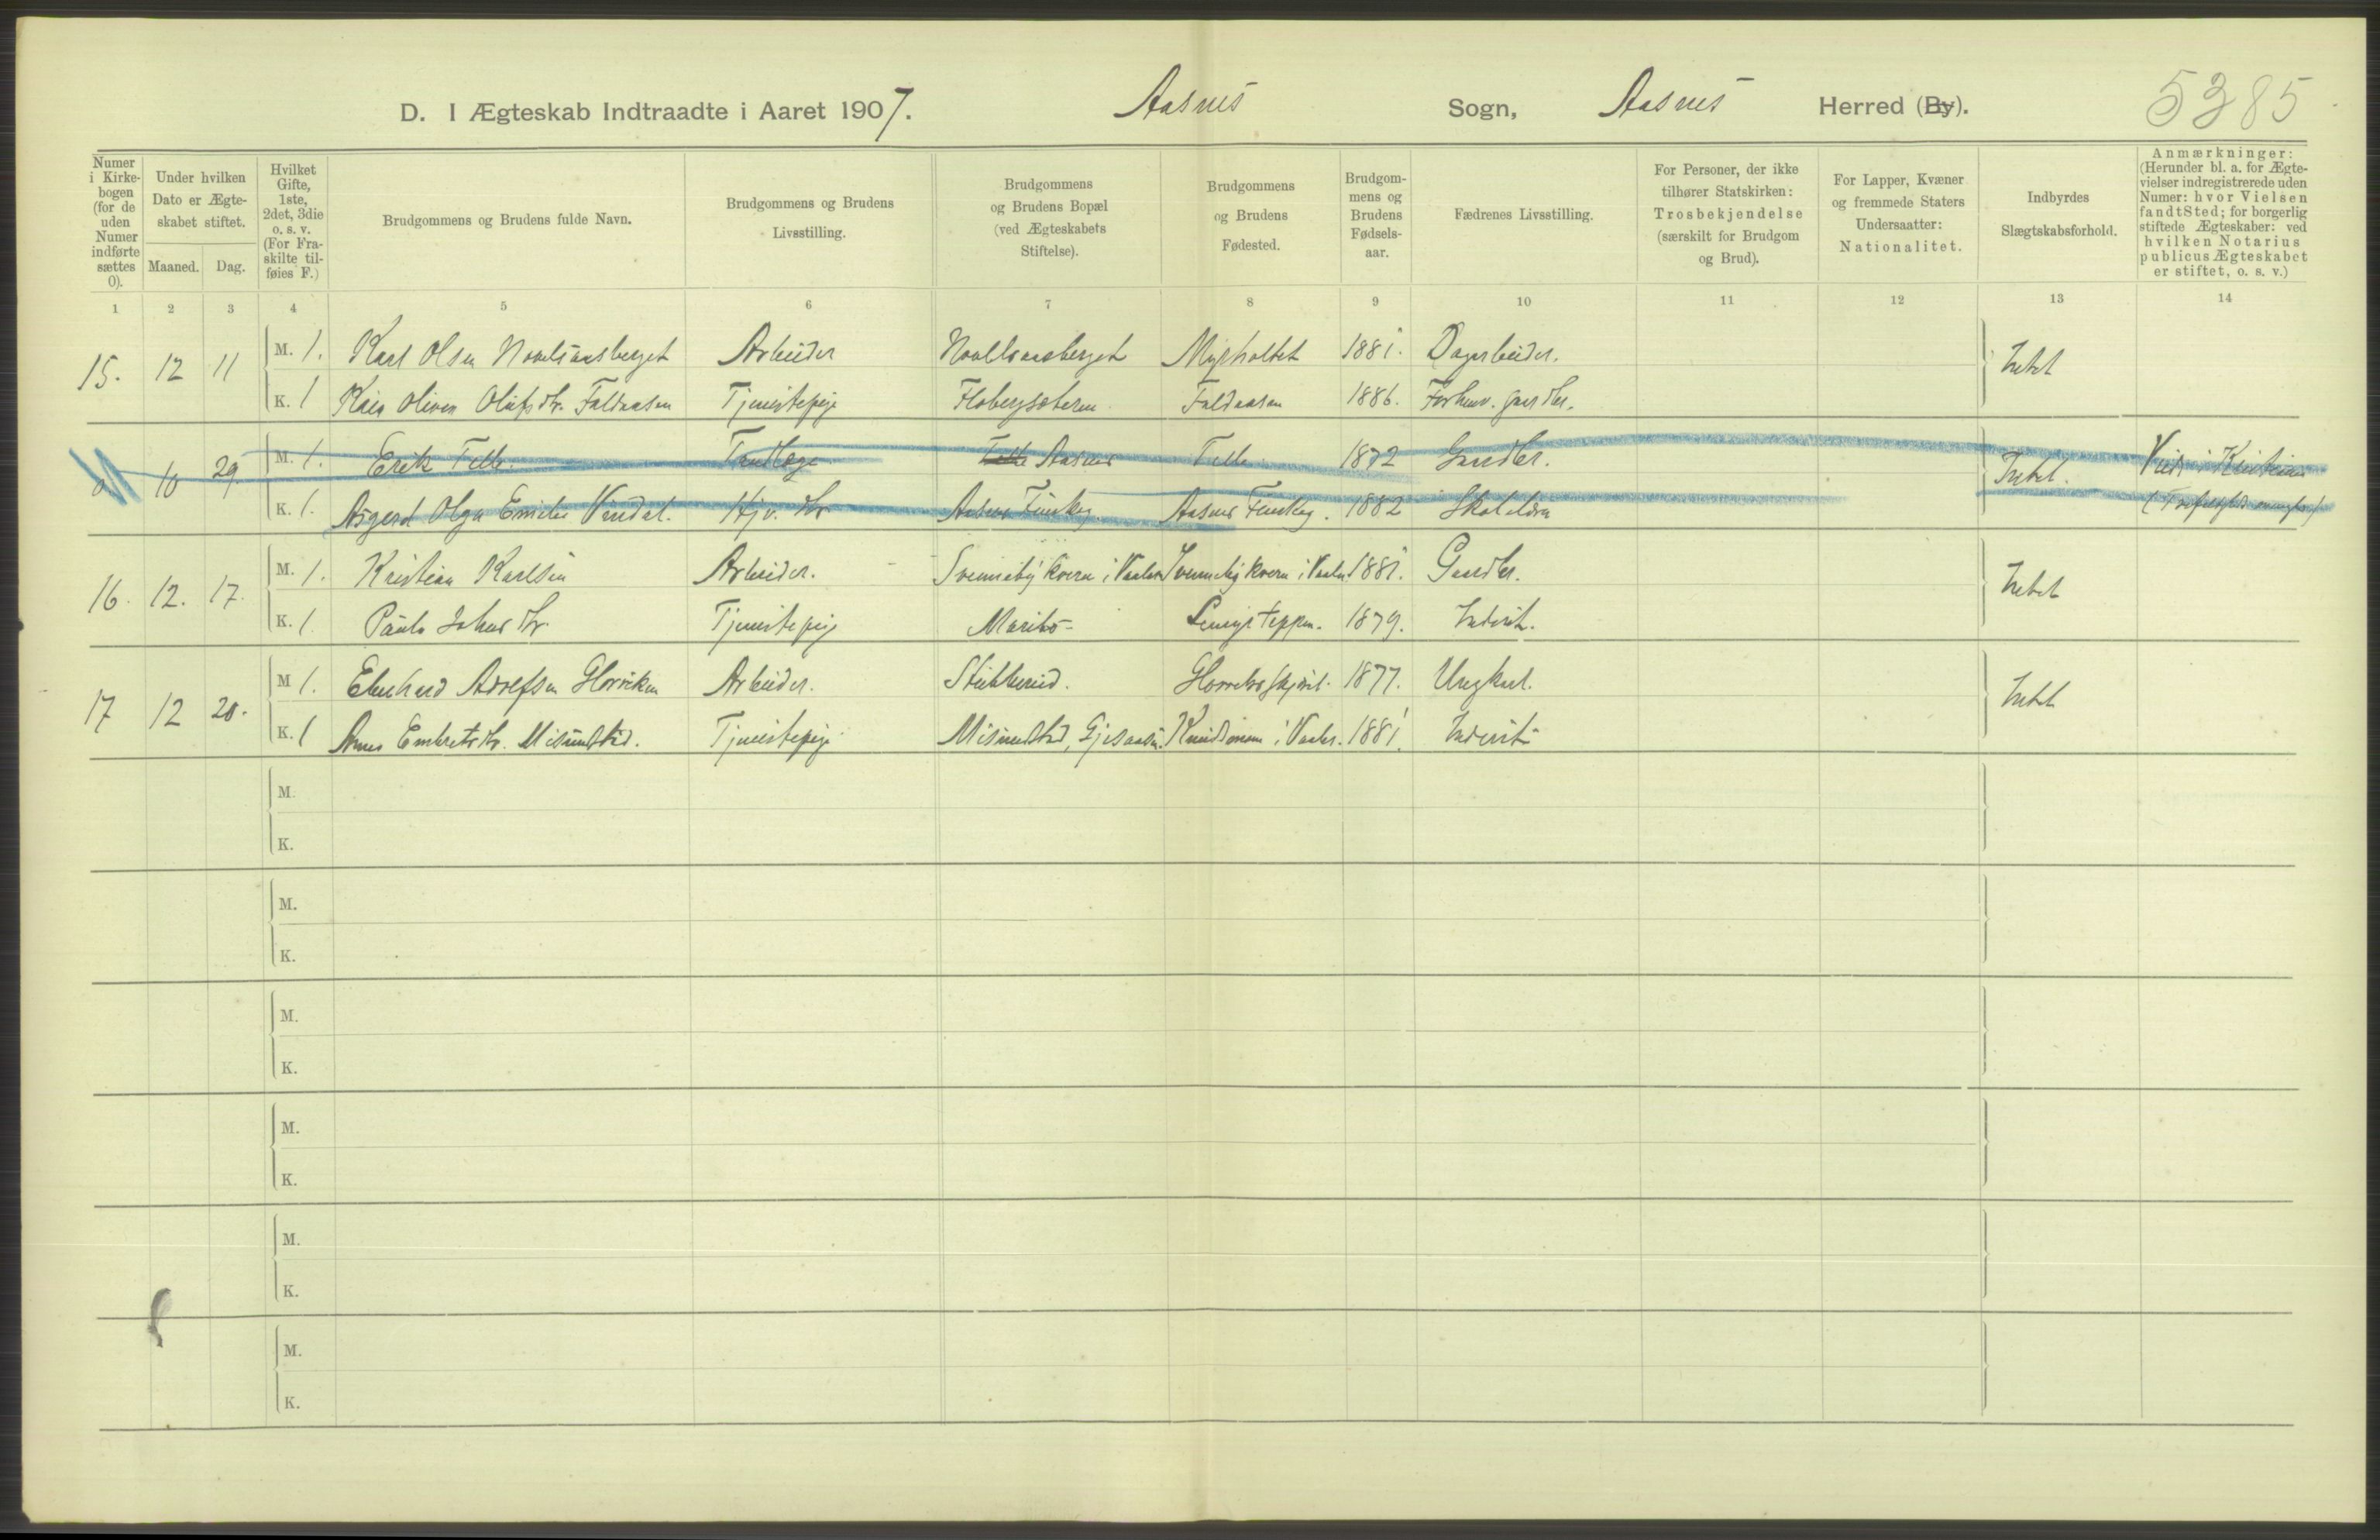 D. I Ægteskab Indtraadte i Aaret 1907. Aasnes Sogn, Aasnes Herred (By). 5385
Numer i Kirkebogen (for de uden Numer indførte sættes 0).
Under hvilken Dato er Ægteskabet stiftet.
Maaned. Dag.
Hvilket Gifte, 1ste, 2det, 3die o. s. v. (For Fraskilte tilføies F.)
Brudgommens og Brudens fulde Navn.
Brudgommens og Brudens Livsstilling.
Brudgommens og Brudens Bopæl (ved Ægteskabets Stiftelse).
Brudgommens og Brudens Fødested.
Brudgommens og Brudens Fødselsaar.
Fædrenes Livsstilling.
For Personer, der ikke tilhører Statskirken: Trosbekjendelse (særskilt for Brudgom og Brud).
For Lapper, Kvæner og fremmede Staters Undersaatter: Nationalitet.
Indbyrdes Slægtskabsforhold.
Anmærkninger: (Herunder bl. a. for Ægtevielser indregistrerede uden Numer: hvor Vielsen fandt Sted; for borgerlig stiftede Ægteskaber: ved hvilken Notarius publicus Ægteskabet er stiftet, o. s. v.)
1 2 3 4 5 6 7 8 9 10 11 12 13 14
15. 12 11 M. 1. Karl Olsen Arbeider Myrholtet 1881. Dagarbeider. Intet
K. 1 Olivia Olufsdtr. Faldaasen Tjenestepige Flobergsæteren Faldaasen 1886. Forhenv. gaardbr.
0 10 29 M. 1. Erik Telle. Tandlæge Aasnes Telle 1872 Gaardbr. Intet. Viet i Kristiania
K. 1. Aagerd Olga Emilie Hjv. dtr. Aasnes Finskog Aasnes Finskog. 1882 Skolelærer
16. 12. 17. M. 1. Kristian Karlsen Arbeider. Svenneby kvern i Vaaler Svenneby kvern i Vaaler 1881. Gaardbr. Intet
K. 1 Paula Johnsdtr. Tjenestepige 1879. Inderst.
17 12 20. M 1. Adolfsen Arbeider. Stubberud. 1877. Ungkarl. Intet
K. 1 Anne Embretsdtr. Misundstad. Tjenestepige Misundstad, Gjesaasen. i Vaaler. 1881. Inderst
M.
K.
M.
K.
M.
K.
M.
K.
M.
K.
M.
K.